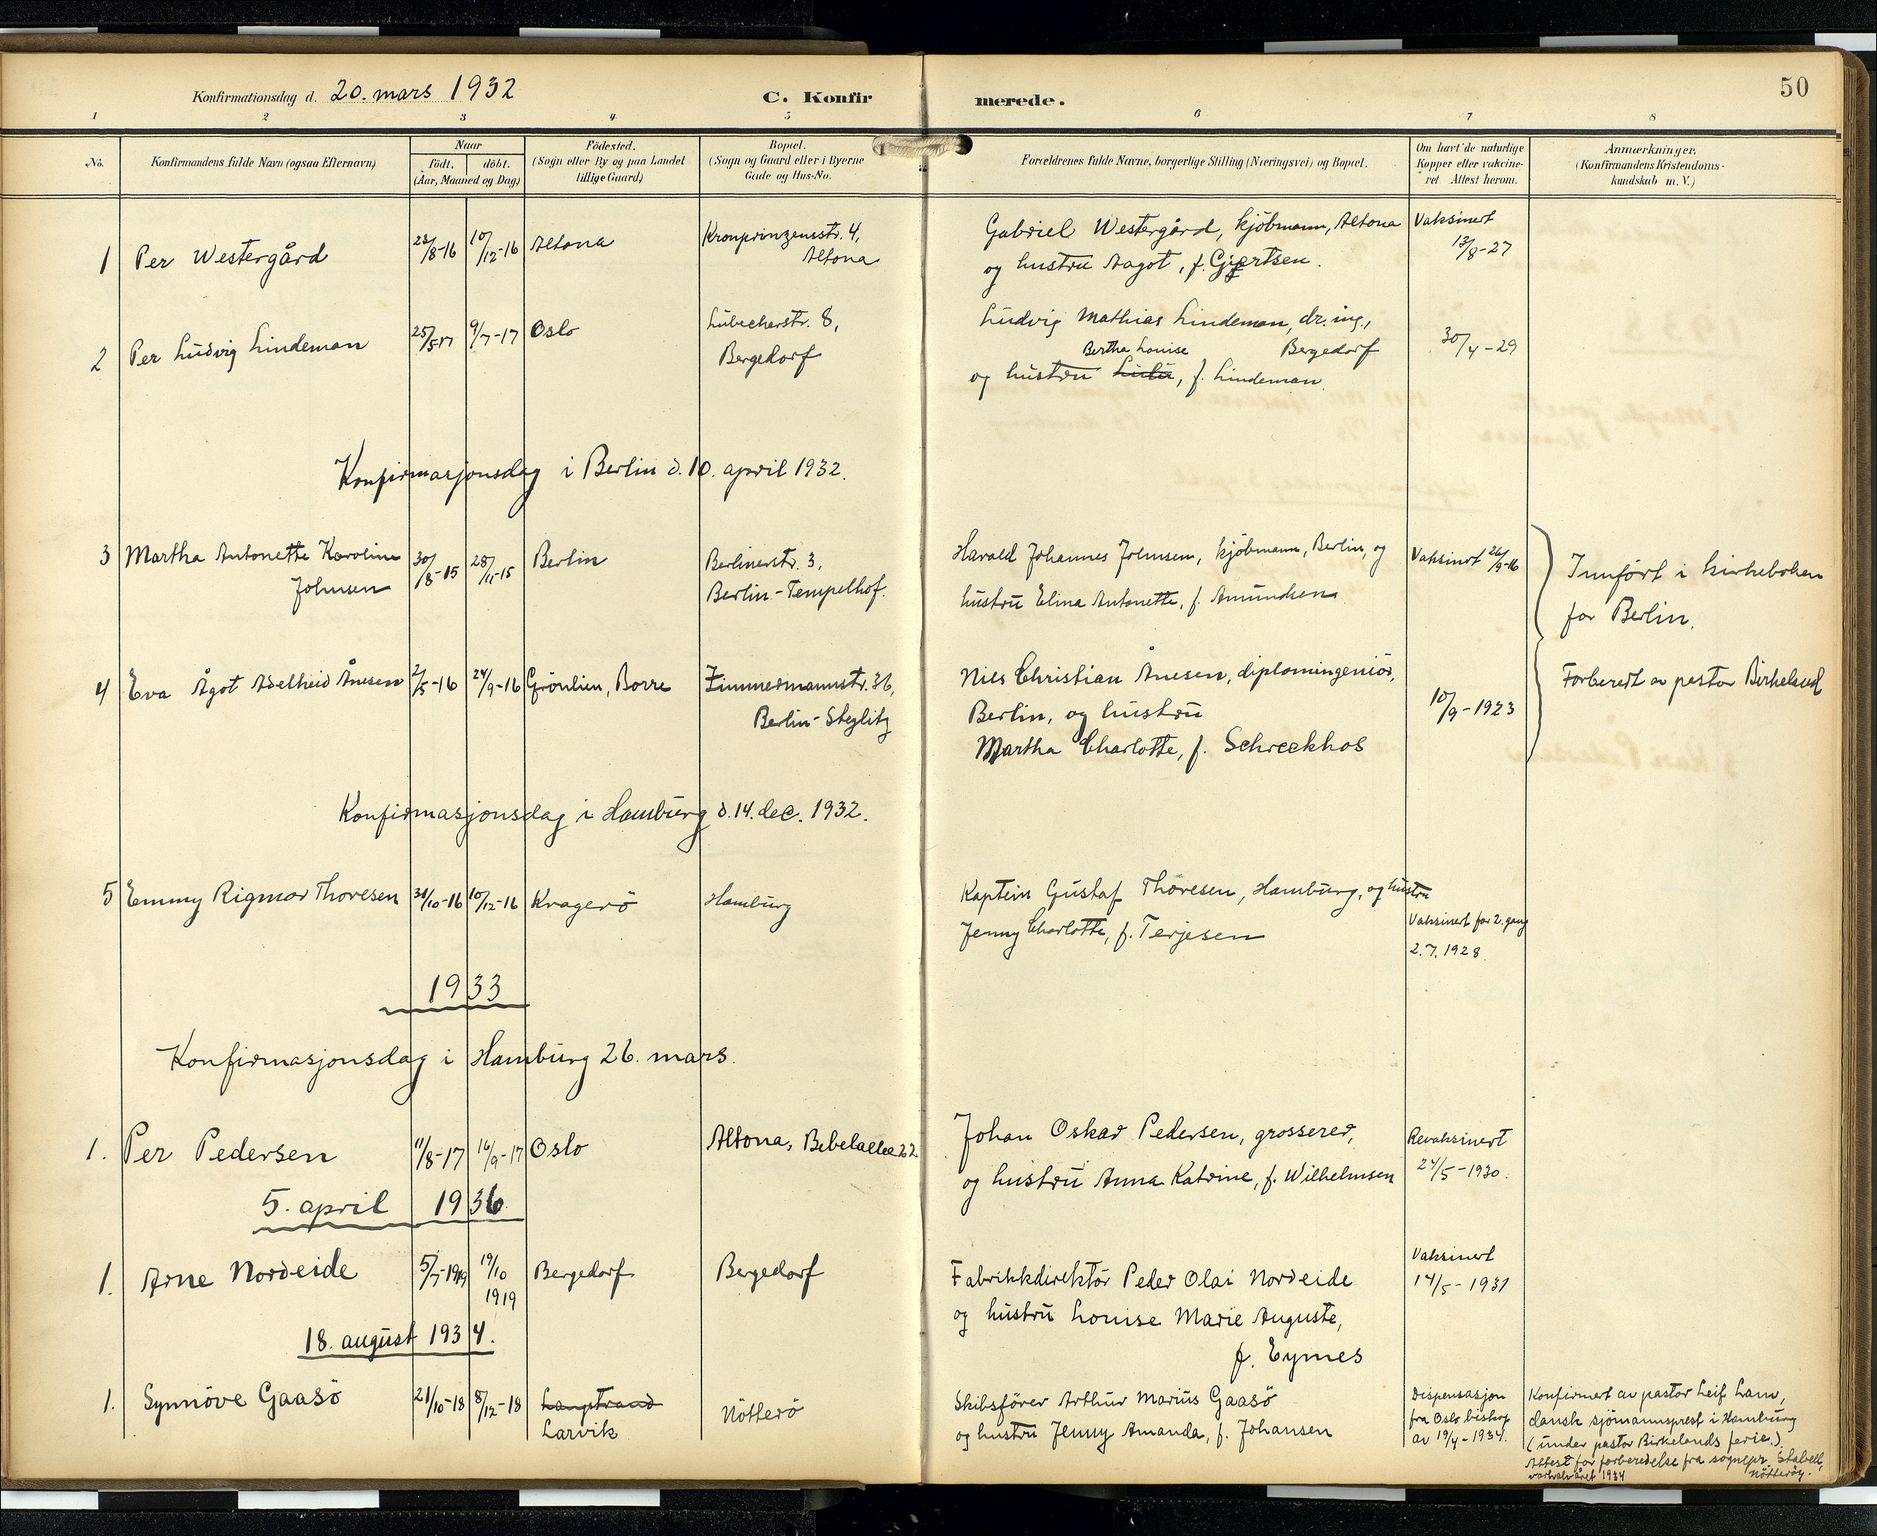 50
Konfirmationsdag d. 20. mars 1932
C. Konfirmerede.
1 2 3 4 5 6 7 8
No.
Konfirmandens fulde Navn (ogsaa Efternavn)
Naar
födt. döbt.
(Aar, Maaned og Dag)
Födested.
(Sogn eller By og paa Landet
tillige Gaard)
Bopæl.
(Sogn og Gaard eller i Byerne
Gade og Hus-No.
Forældrenes fulde Navne, borgerlige Stilling (Næringsvei) og Bopæl.
Om havt de naturlige
Kopper eller vakcine-
ret Attest herom.
Anmærkninger.
(Konfirmandens Kristendoms-
kundskab m. V.)
1 Per Westergård 10/12-16 Altona Kronprinzenstr. 4,
Altona
Gabriel Westergård, kjöbmann, Altona
og hustru Aagot, f. Gjertsen.
Vaksinert
13/8-27
2 Per Ludvig Lindeman 25/5 17 9/7-17 Oslo Lübeckerstr. 8,
Bergedorf
Ludvig Mathias Lindeman, dr. ing.,
Bertha Louise Bergedorf
og hustru Lulu, f. Lindeman.
30/4-29
Konfirmasjonsdag i Berlin d. 10. april 1932.
3 Martha Antonette Karoline
Johnsen
30/8-15 28/11-15 Berlin Berlinerstr. 3,
Berlin-Tempelhof.
Harald Johannes Johnsen, kjöbmann, Berlin, og
hustru Elina Antonette, f. Amundsen
Vaksinert 26/9-16
Innfört i kirkeboken
for Berlin.
4 Eva Ågot Adelheid Ånesen 2/5-16 24/9-16 Grönlien, Borre Zimmermannstr. 36,
Berlin-Steglitz
Nils Christian Ånesen, diplomingeniör,
Berlin, og hustru
Martha Charlotte, f. Schreckhos
10/9-1923
Forberedt av pastor Birkeland
Konfirmasjonsdag i Hamburg d. 14. dec. 1932.
5 Emmy Rigmor Thoresen 31/10-16 10/12-16 Kragerö Hamburg
Kaptein Gustaf Thoresen, Hamburg, og hustru
Jenny Charlotte, f. Terjesen
Vaksinert for 2. gang
2.7.1928.
1933
Konfirmasjonsdag i Hamburg 26. mars.
1. Per Pedersen 11/8-17 16/9-17 Oslo Altona, Bebelallee 22
Johan Oskar Pedersen, grosserer,
og hustru Anna Katrine, f. Wilhelmsen
Revaksinert
24/5-1930.
5. april 1936.
1. Arne Nordeide 5/7-1919 19/10
1919
Bergedorf Bergedorf
Fabrikkdirektör Peder Olai Nordeide
og hustru Louise Marie Auguste,
f. Eymes
Vaksinert
14/5-1931
18. august 1934.
1. Synnöve Gaasö 21/10-18 8/12-18 Langstrand
Larvik
Nötterö
Skibsförer Arthur Marius Gaasö
og hustru Jenny Amanda, f. Johansen
Dispensasjon
fra Oslo biskop
av 19/4-1934.
Konfirmert av pastor Leif Lam,
dansk sjömannsprest i Hamburg
(under pastor Birkelands ferie.)
Attest for forberedelse fra sognepr. Stabell,
Nötteröy.
1934